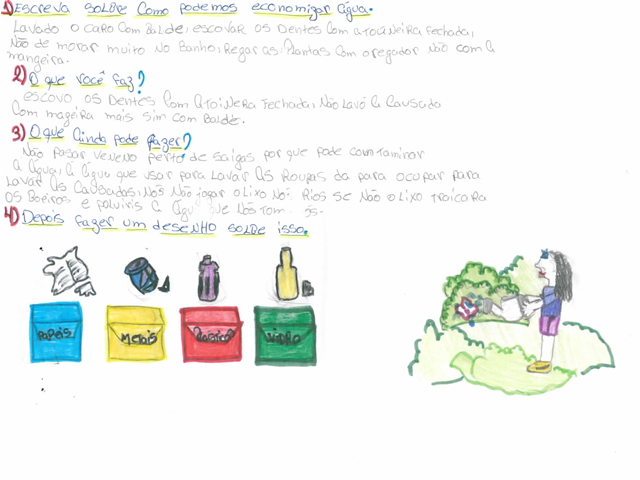 1) Escreva soLBe Como podemos economizar água.
Lavado o caro com BaLde, escovar os Dentes com a torNeira fechada,
Não de morar muito No Banho, Regar as pLantas com o regador Não com a
mangeira.
2) O que você faz?
escovo os Dentes com a toiNera fechada, Não Lavo a Causada
Com mageira mais sim com BaLde.
3) O que ainda pode fazer?
Não pasar veneno perto de saigas por que pode comtaminar
a água, a água que usar para Lavar as Roupas da para ocupar para
Lavar as CaLsadas, Nós Não jogar o Lixo Nos Rios se Não o Lixo
os Boeiros e poLuiris a águ que Nós Tom
4) Depois fazer um deseNHo soLBe isso.
PAPeis
MeTais
PLasico
ViDRo